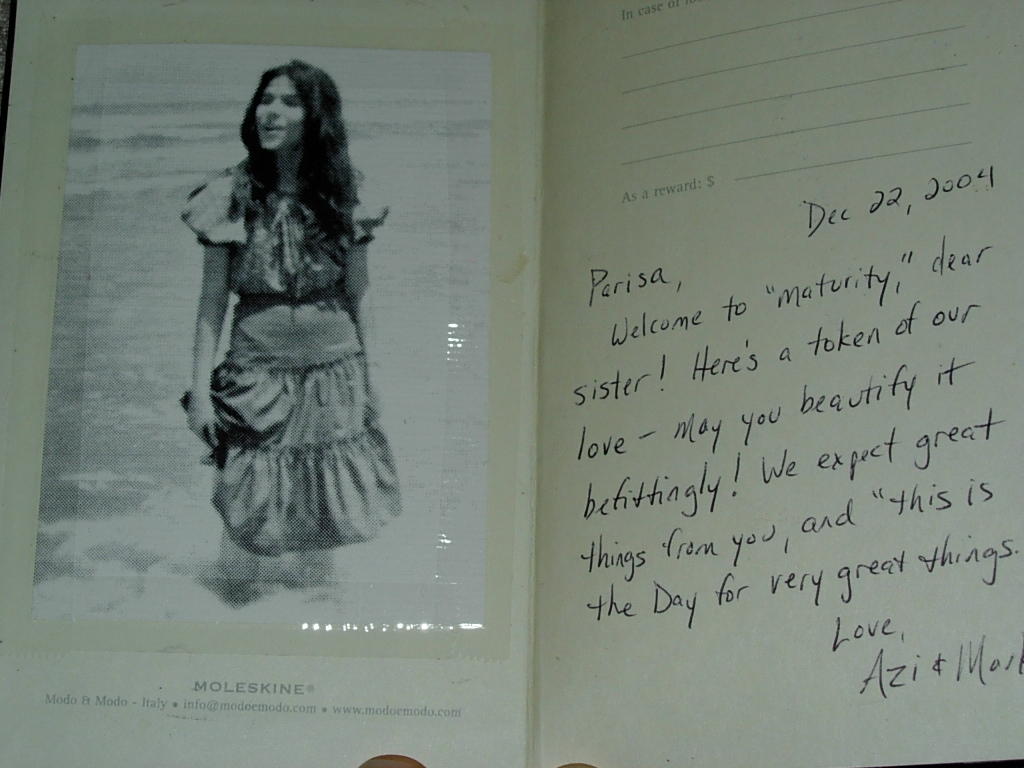 MOLESKINE®
Modo & Modo - Italy • info@modoemodo.com • www.modoemodo.com
In case of
As a reward: $
Dec 22, 2004
Parisa,
Welcome to "maturity," dear
sister! Here's a token of our
love - may you beautify it
befittingly! We expect great
things from you, and "this is
the Day for very great things.
Love,
Azi &